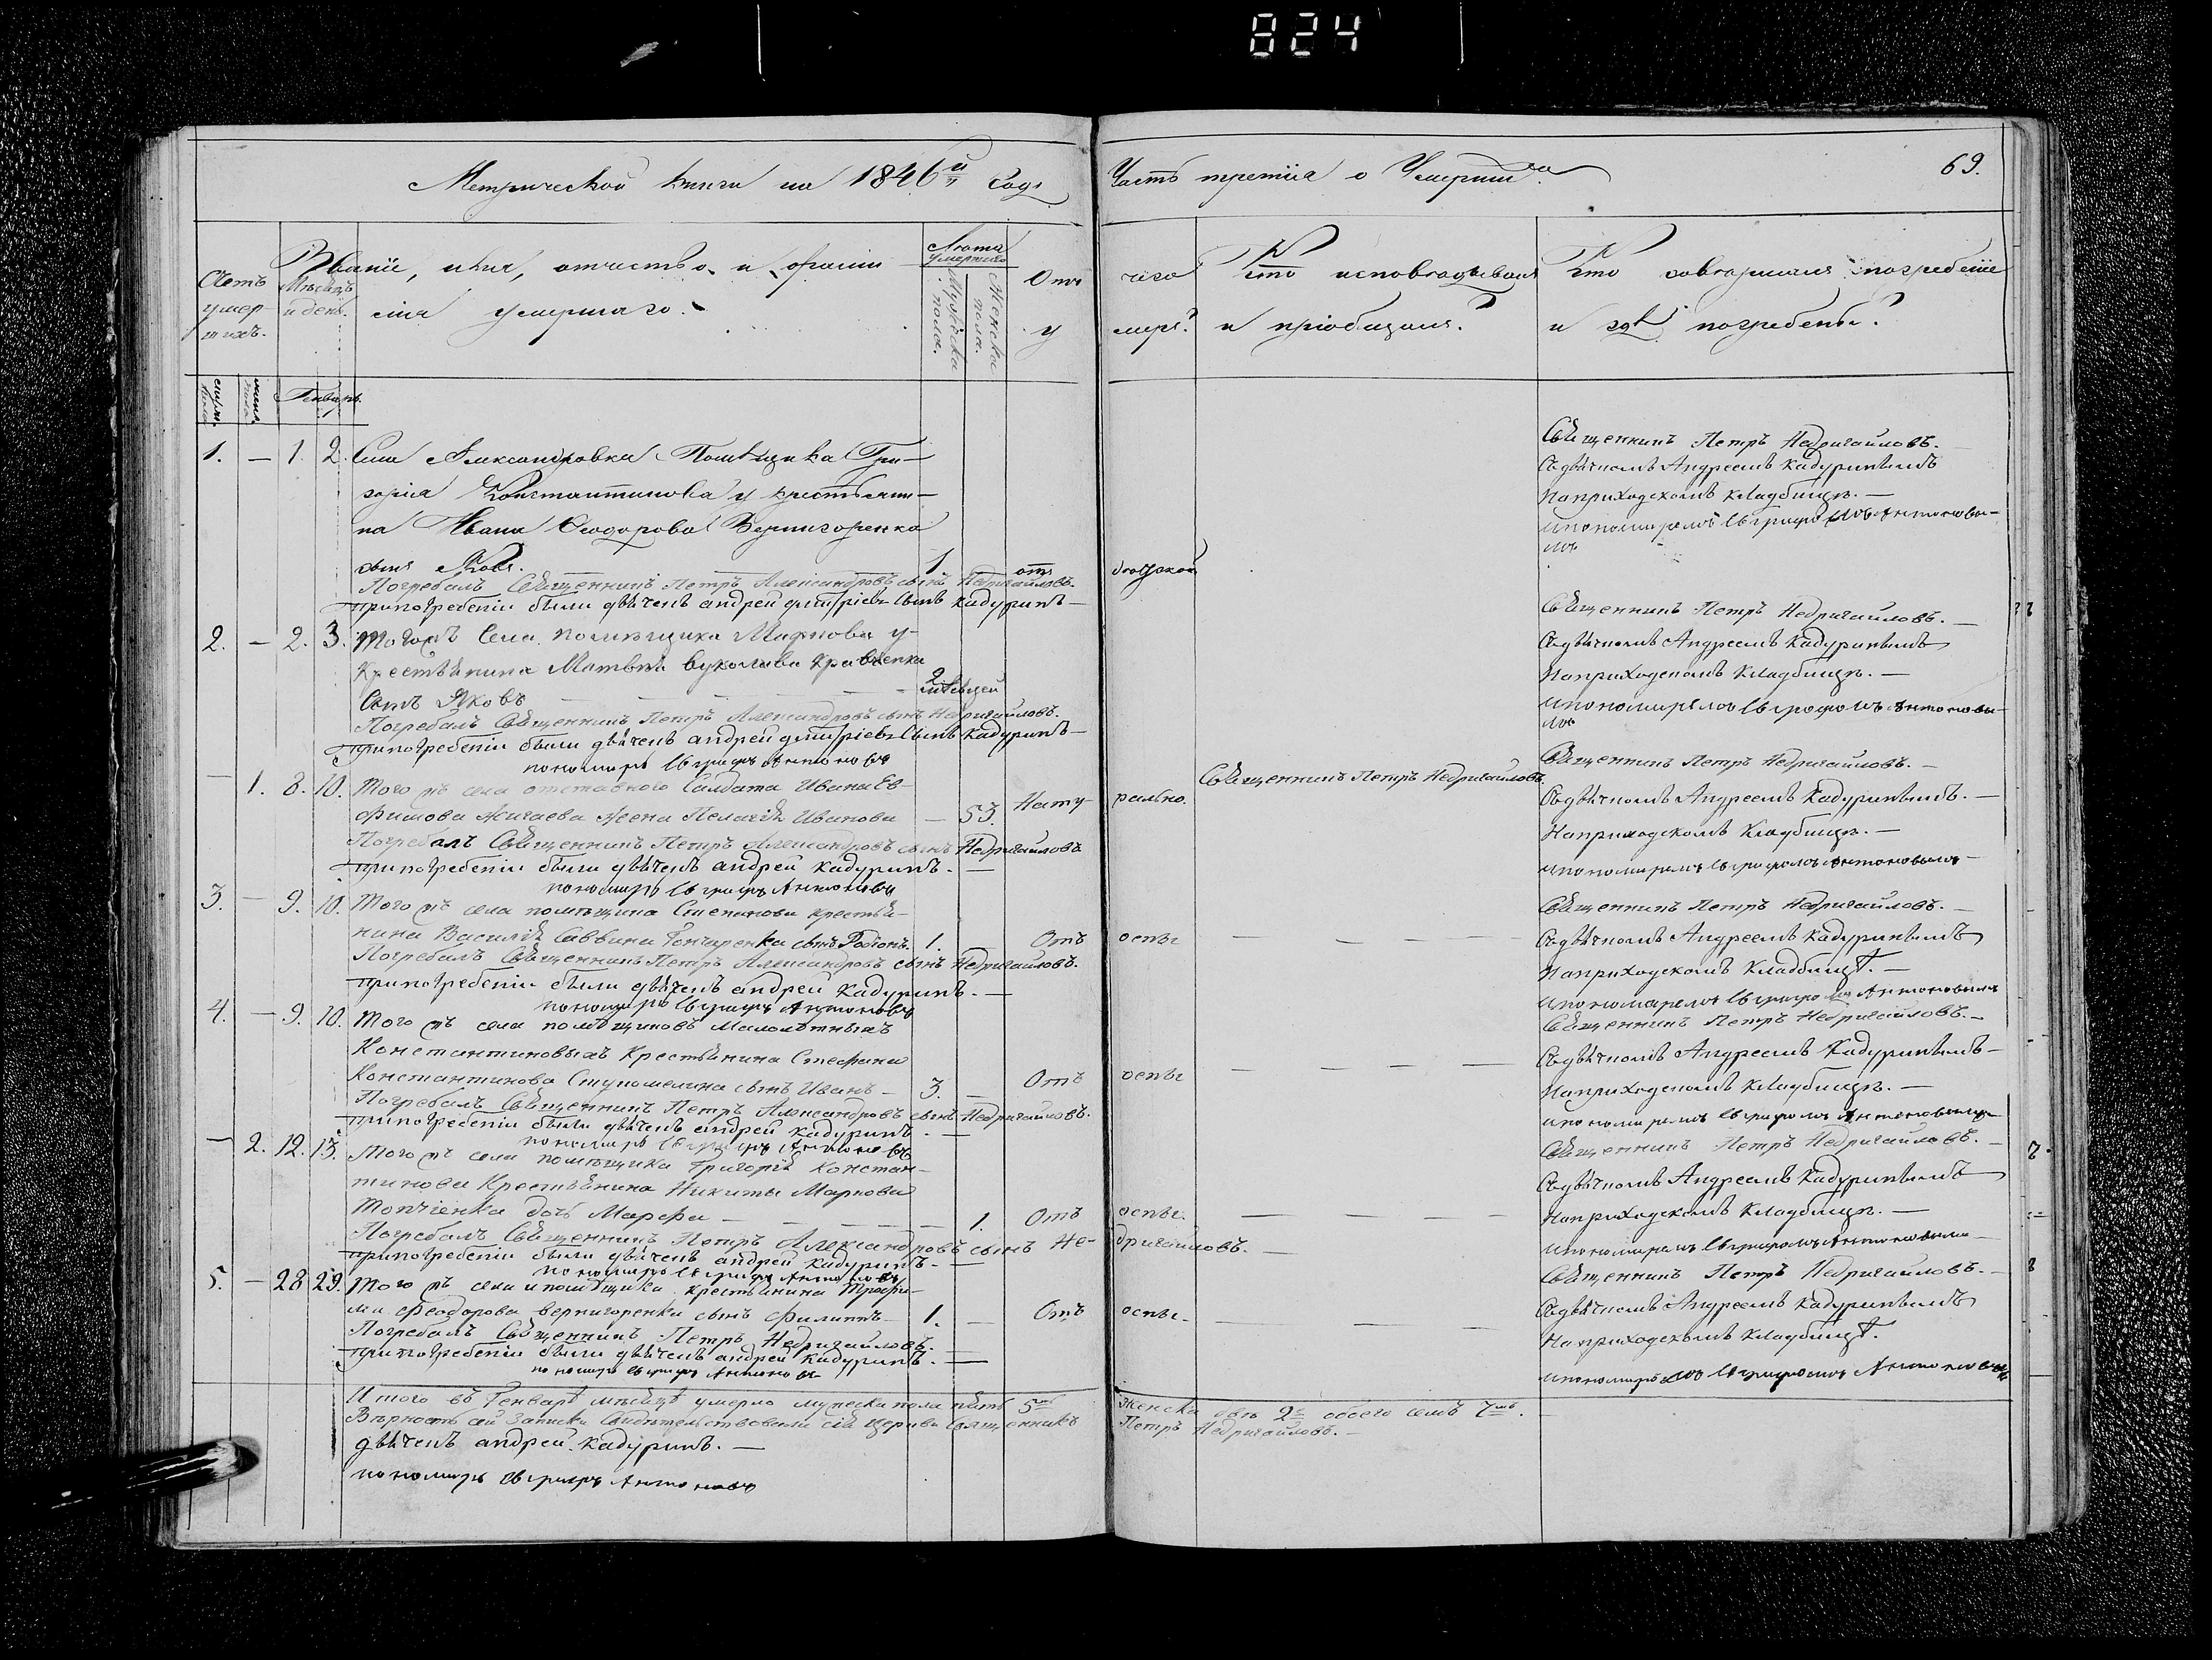 824
Метрической книги на 1846й годъ
Часть третiя о Умершихъ
69.
Счетъ умершихъ.
Мѣсяцъ и день.
Званiе, имя, отчество, и фамилiя умершаго.
Лета умершаго
Мужеска пола.
Женска пола.
Отъ чего
умеръ?
Кто исповѣдывалъ
и прiобщалъ?
Кто совершалъ погребенiе
и гдѣ погребены?
Генварь.
1. — 1. 2. Села Александровка Помѣщика Гри-
горiя Константинова у крестьяни-
на Ивана Феодорова Вернигоренка
сынъ Яковъ. 1. отъ
Погребалъ Священникъ Петръ Александровъ сынъ Недригайловъ.
При погребенiи были дьяченъ андрей дмитрiевъ сынъ кадуринъ —
Священникъ Петръ Недригайловъ. —
Съ дьячкомъ Андреемъ Кадуринымъ
На приходскомъ кладбищѣ. —
и пономаремъ Антоновы-
мъ
2. — 2. 3. того жъ Села помѣщика у
Крестьянина Матвѣя Вуколова Кравченка
Сынъ Яковъ — — — 2 мѣсяцей
Погребалъ Священникъ Петръ Александровъ сынъ Недригайловъ.
При погребенiи были дьяченъ андрей дмитрiевъ Сынъ кадуринъ —
пономарь Антоновъ
Священникъ Петръ Недригайловъ. —
Съ дьячкомъ Андреемъ Кадуринымъ
На приходскомъ кладбищѣ. —
и пономаремъ Антоновы-
мъ
— 1. 8. 10. Того жъ села отставного Салдата Ивана Ев-
фимова Жигаева жена Пелагiя Иванова — 53. Нату-
рально.
Священникъ Петръ Недригайловъ.
Погребалъ Священникъ Петръ Александровъ сынъ Недригайловъ
При погребенiи были дьяченъ андрей кадуринъ. —
пономарь Антоновъ
Священникъ Петръ Недригайловъ. —
Съ дьячкомъ Андреемъ Кадуринымъ. —
На приходскомъ Кладбищѣ. —
и пономаремъ Антоновымъ —
3. — 9. 10. Того жъ села помѣщика Степанова крестья-
нина Василiя Саввина Гончаренка сынъ Родiонъ. 1. — Отъ оспы — — —
Погребалъ Священникъ Петръ Александровъ сынъ Недригайловъ.
При погребенiи были дьяченъ андрей кадуринъ. —
пономарь Антоновъ
Священникъ Петръ Недригайловъ. —
Съ дьячкомъ Андреемъ Кадуринымъ
На приходскомъ Кладбищѣ. —
и пономаремъ Антоновымъ
4. — 9. 10. Того жъ села помѣщиковъ Малолѣтныхъ
Константиновыхъ Крестьянина Стефана
Константинова сынъ Иванъ — 3. — Отъ оспы — — — —
Погребалъ Священникъ Петръ Александровъ сынъ Недригайловъ.
При погребенiи были дьяченъ андрей кадуринъ. —
пономарь Антоновъ
Священникъ Петръ Недригайловъ. —
Съ дьячкомъ Андреемъ Кадуринымъ —
На приходскомъ Кладбищѣ. —
и пономаремъ Антоновымъ
— 2. 12. 13. Того жъ села помѣщика Григорiя Констан-
тинова Крестьянина Никиты Маркова
дочь Марфа — — — 1. Отъ оспы. — — —
Погребалъ Священникъ Петръ Александровъ сынъ Не-
дригайловъ. —
При погребенiи были дьяченъ андрей кадуринъ. —
пономарь Антоновъ
Священникъ Петръ Недригайловъ. —
Съ дьячкомъ Андреемъ Кадуринымъ
На приходскомъ Кладбищѣ. —
и пономаремъ Антоновымъ —
5. — 28 29. Того жъ села и помѣщика крестьянина Трофи-
ма Феодорова вернигоренка сынъ Филиппъ — 1. — Отъ оспы. — — —
Погребалъ Священникъ Петръ Недригайловъ.
При погребенiи были дьяченъ андрей кадуринъ. —
пономарь Антоновъ
Священникъ Петръ Недригайловъ. —
Съ дьячкомъ Андреемъ Кадуринымъ
На приходскомъ Кладбищѣ.
и пономаремъ Антоновымъ
Итого въ Генварѣ мѣсяцѣ умерло мужеска пола пять 5ть женска двѣ 2ѣ обоего семь 7мь. —
Вѣрность сей Записки Свидѣтельствовали сiя церкви Священникъ Петръ Недригайловъ. —
дьяченъ андрей кадуринъ. —
пономарь Антоновъ